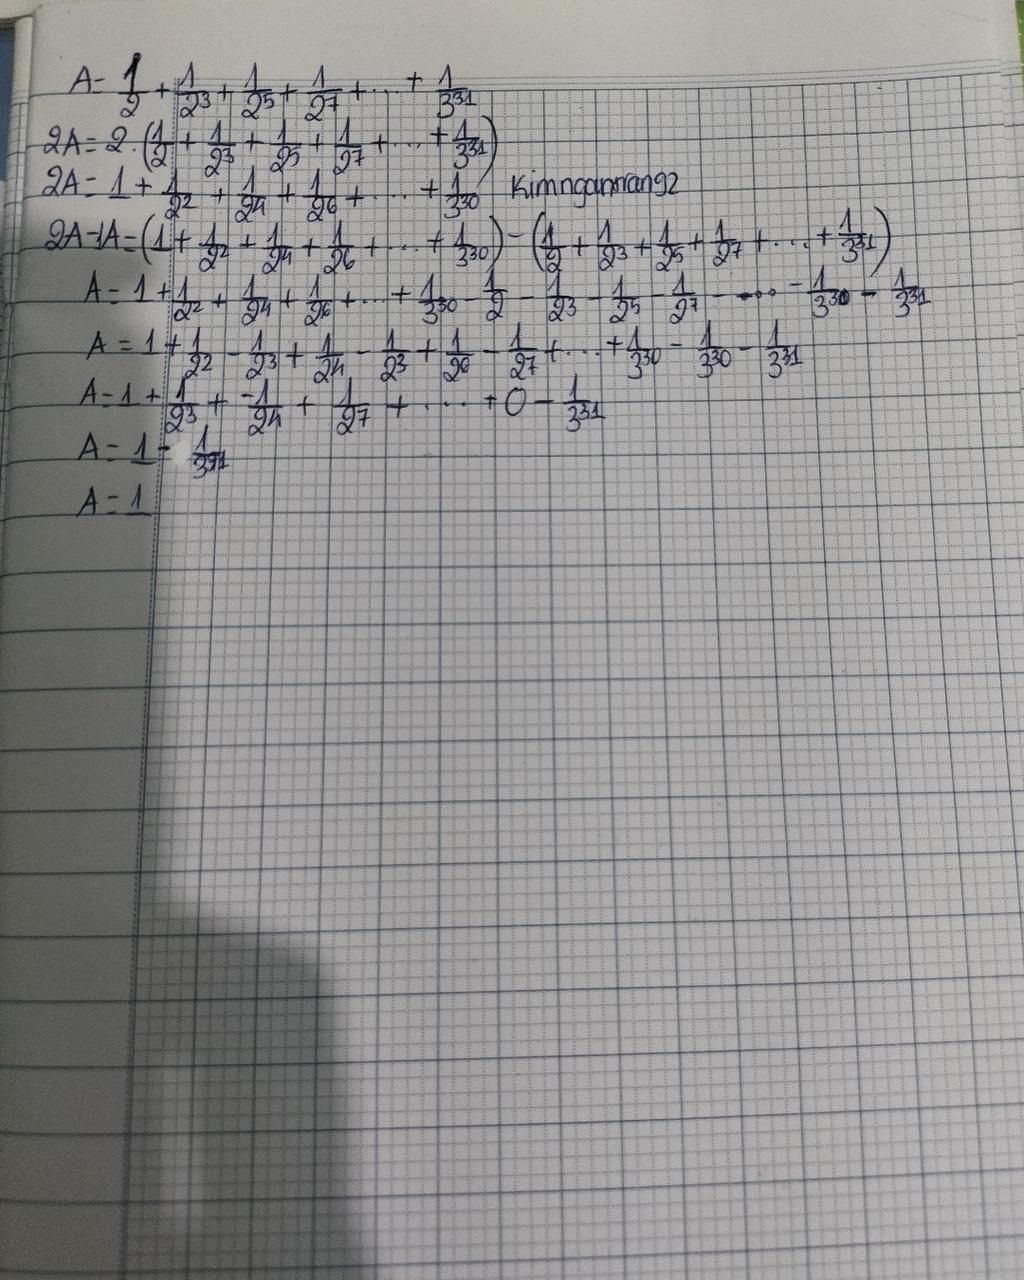 A = 1/2 + 1/2^3 + 1/2^5 + 1/2^7 + ... + 1/3^31
2A = 2 . (1/2 + 1/2^3 + 1/2^5 + 1/2^7 + ... + 1/3^31)
2A = 1 + 1/2^2 + 1/2^4 + 1/2^6 + ... + 1/3^30 Kimnganman92
2A-1A = (1 + 1/2^2 + 1/2^4 + 1/2^6 + ... + 1/3^30) - (1/2 + 1/2^3 + 1/2^5 + 1/2^7 + ... + 1/3^31)
A = 1 + 1/2^2 + 1/2^4 + 1/2^6 + ... + 1/3^30 - 1/2 - 1/2^3 - 1/2^5 - 1/2^7 - ... - 1/3^30 - 1/3^31
A = 1 + 1/2^2 - 1/2^3 + 1/2^4 - 1/2^3 + 1/2^6 - 1/2^7 + ... + 1/3^30 - 1/3^30 - 1/3^31
A = 1 + 1/2^3 + -1/2^4 + 1/2^7 + .... + 0 - 1/3^31
A = 1 - 1/3^31
A = 1